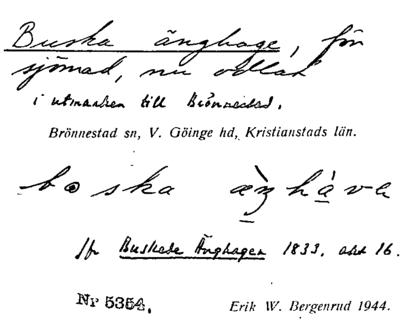 Buska änghage, förr
sjömad, nu odlad
i utmarken till Brönnestad.
Brönnestad sn, V. Göinge hd, Kristianstads län.
boska æ̀ŋhàva
Jfr Buskede Änghagen 1833, akt 16.
Nr 5354.
Erik W. Bergenrud 1944.